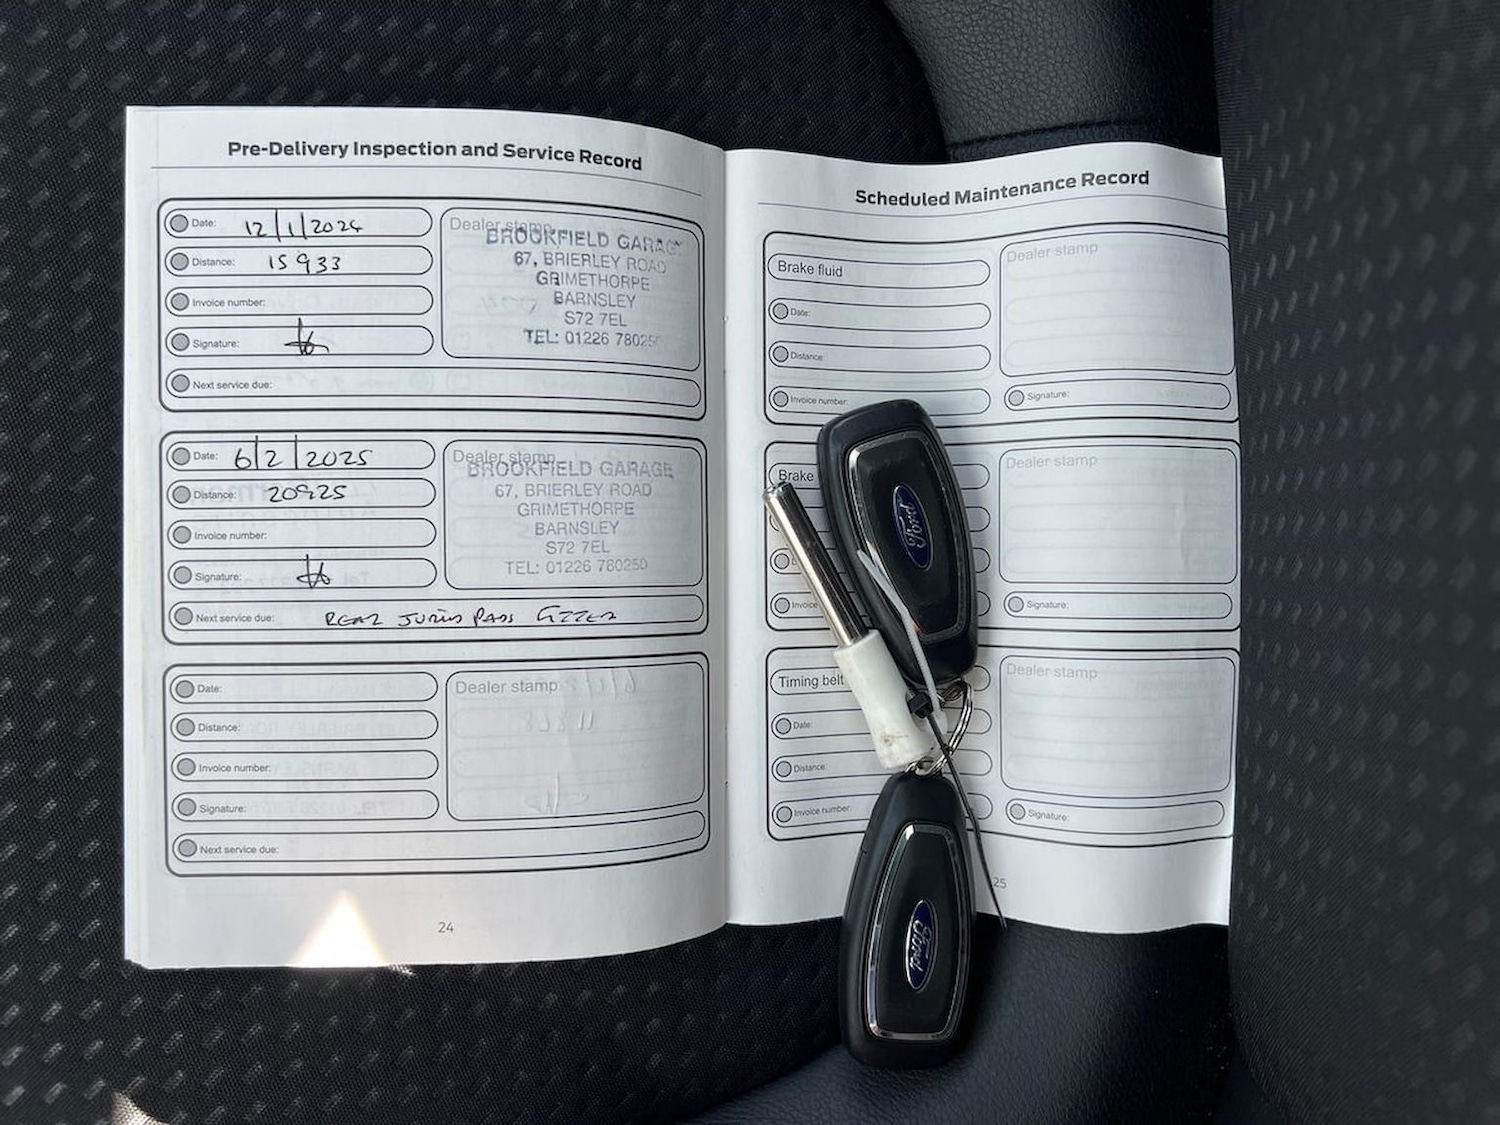 Pre-Delivery Inspection and Service Record
Date: 12/1/2024
Distance: 15933
Invoice number:
Signature:
Next service due:
Dealer stamp
BROOKFIELD GARAGE
67, BRIERLEY ROAD
GRIMETHORPE
BARNSLEY
S72 7EL
TEL: 01226 780250
Date: 6/2/2025
Distance: 20925
Invoice number:
Signature:
Next service due: REAR PADS
Dealer stamp
BROOKFIELD GARAGE
67, BRIERLEY ROAD
GRIMETHORPE
BARNSLEY
S72 7EL
TEL: 01226 780250
Date:
Distance:
Invoice number:
Signature:
Next service due:
Dealer stamp
24
Scheduled Maintenance Record
Brake fluid
Date:
Distance:
Invoice number:
Dealer stamp
Signature:
Brake
Invoice
Dealer stamp
Signature:
Timing belt
Date:
Distance:
Invoice number:
Dealer stamp
Signature:
25
Ford
Ford